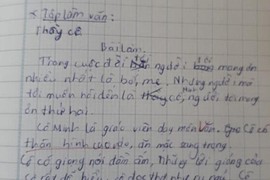 * Tập làm văn:
Thầy cô
Bài làm
Trong cuộc đời người mang ơn
nhiều nhất là bố, mẹ. Nhưng người mà
tôi muốn nói đến là cô, người tôi mang
ơn thứ hai.
Cô Minh là giáo viên dạy môn văn. Cô có
thân hình cao, ăn mặc sang trọng.
Cô có giọng nói dần ấm, những lời giảng của
cô rất dễ hiểu,